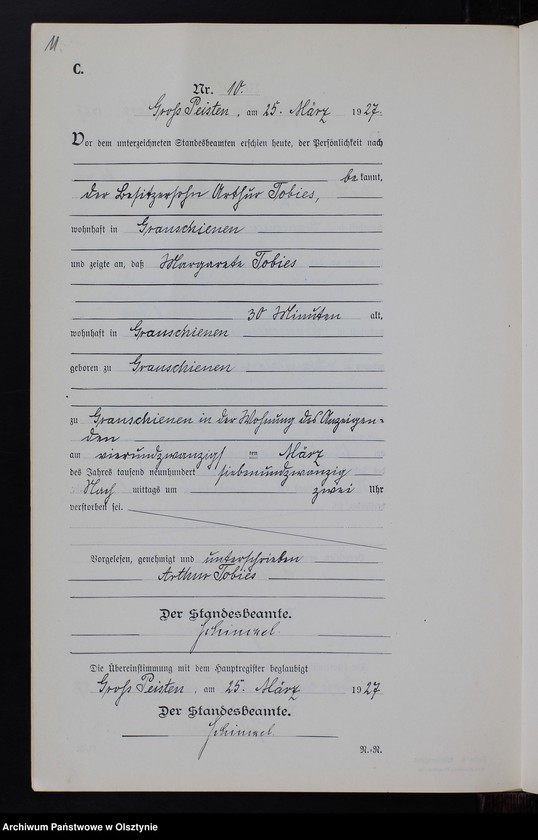 11.
C.
Nr. 10.
Groß Peisten, am 25. März 1927.
Vor dem unterzeichneten Standesbeamten erschien heute, der Persönlichkeit nach
bekannt,
der Besitzersohn Arthur Tobies,
wohnhaft in Grauschienen
und zeigte an, daß Margarete Tobies
30 Minuten alt,
wohnhaft in Grauschienen
geboren zu Grauschienen
zu Grauschienen in der Wohnung des Anzeigen=
den
am vierundzwanzigsten März
des Jahres tausend neunhundert siebenundzwanzig
Nach mittags um zwei Uhr
verstorben sei.
Vorgelesen, genehmigt und unterschrieben
Arthur Tobies
Der Standesbeamte.
Die Übereinstimmung mit dem Hauptregister beglaubigt
Groß Peisten, am 25. März 1927
Der Standesbeamte.
N.-R.
Archiwum Państwowe w Olsztynie